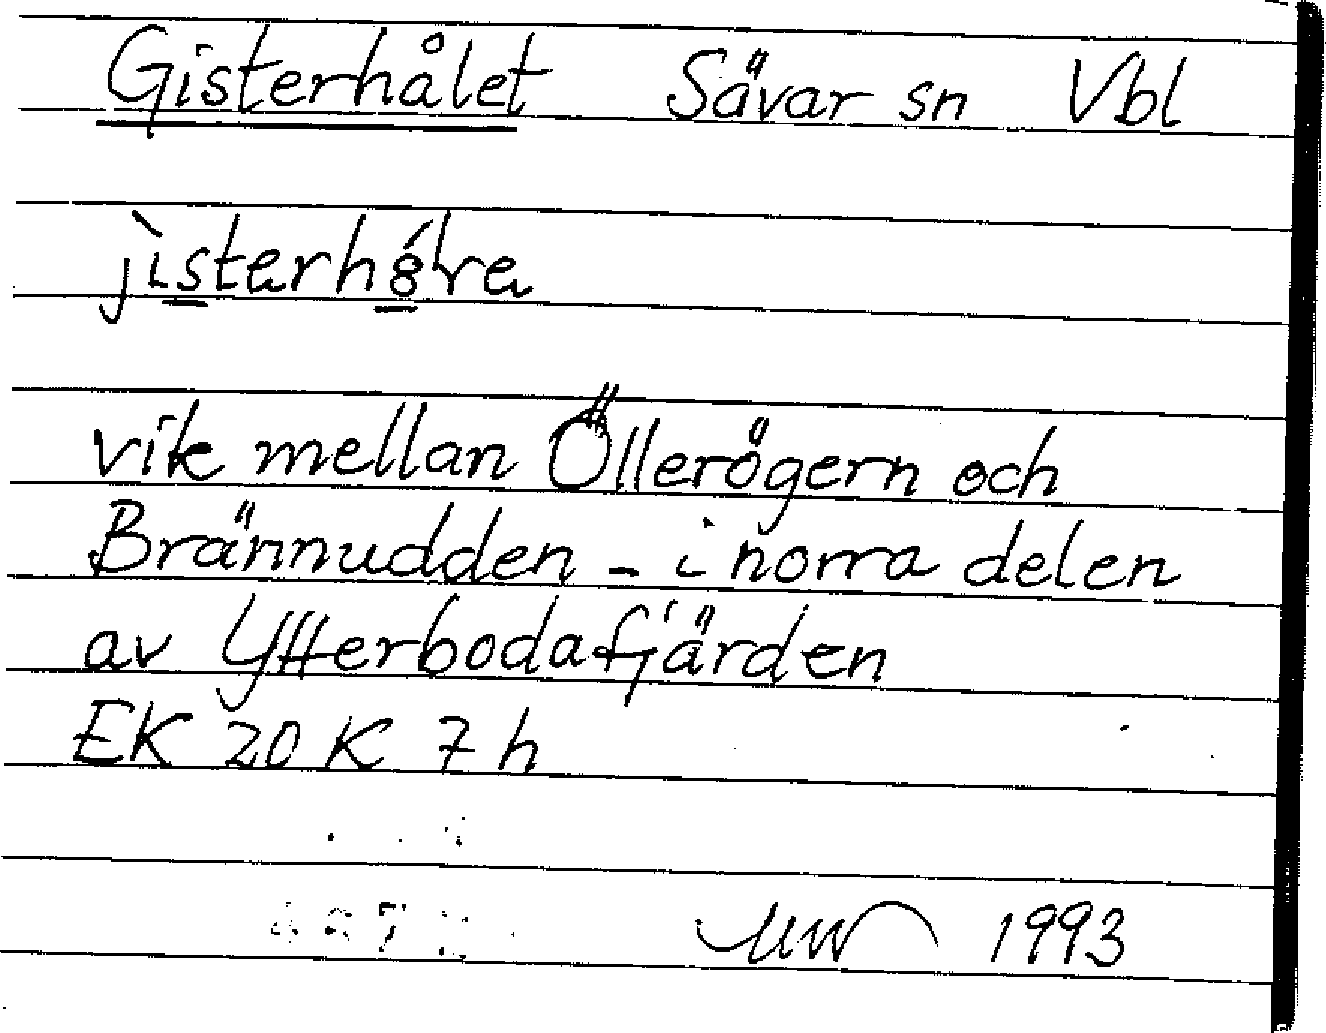 Gisterhålet Sävar sn Vbl
vik mellan Öllerögern och
Brännudden - i norra delen
av Ytterbodafjärden
EK 20 K 7 h
1993